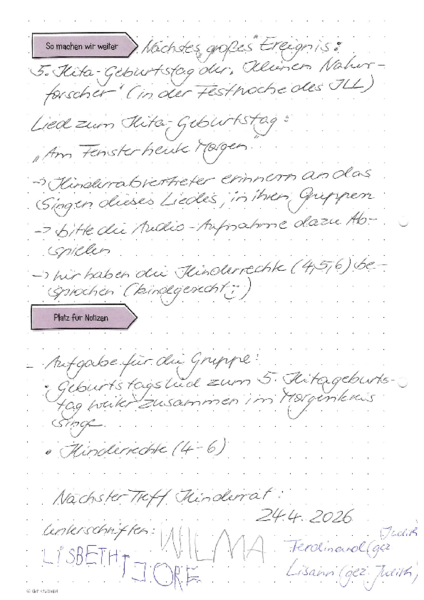 So machen wir weiter
Nächstes "großes" Ereignis:
5. Kita-Geburtstag der "Kleinen Natur-
forscher" (in der Festwoche des JLL)
Lied zum Kita-Geburtstag:
"Am Fenster heute Morgen"
-> Kinderratvertreter erinnern an das
Singen dieses Liedes, in ihren Gruppen
-> bitte die Audio-Aufnahme dazu Ab-
spielen
-> wir haben die Kinderrechte (4,5,6) be-
sprochen (kindgerecht ;)
Platz für Notizen
- Aufgabe für die Gruppe:
• Geburtstagslied zum 5. Kitageburts-
tag weiter zusammen im Morgenkreis
singe
• Kinderrechte (4-6)
Nächster Treff Kinderrat:
24.4.2026
Unterschriften:
WILMA
Ferdinand (gez. Judith
LISBETH
JORE
Lisann (gez. Judith)